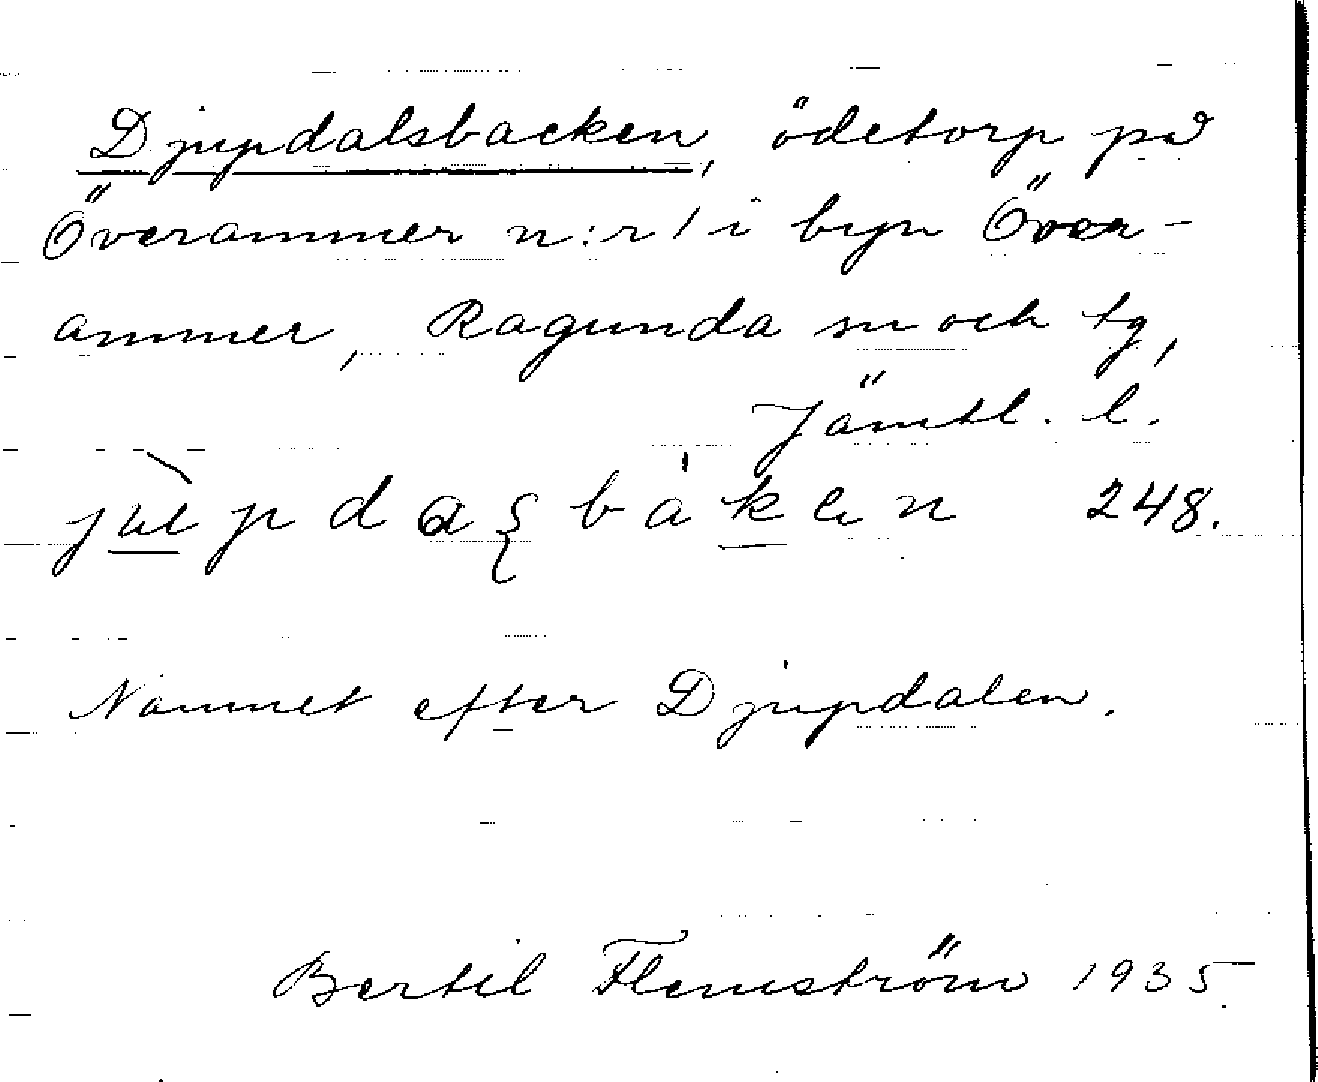 Djupdalsbacken, ödetorp på
Överammer n:r 1 i byn Över-
ammer, Ragunda sn och tg,
Jämtl. l.
248.
Namnet efter Djupdalen.
Bertil Flemström 1935